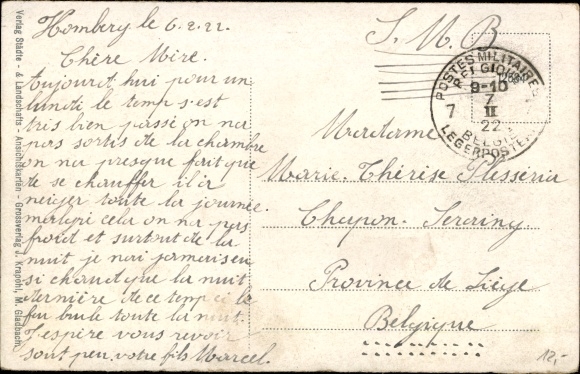 Homberg le 6.2.22
Chère Mère.
Aujourd hui pour un
lundi le temps s'est
très bien passé on na
pas sortis de la chambre
on na presque fait que
de se chauffer il à
neiger toute la journée.
malgri cela on na pas
froid et surtout de la
nuit je nai jamais eu
si chaud que la nuit
dernière de ce temp ci le
feu brule toute la nuit.
J'espère vous revoir
sont peu. votre fils Marcel.
S. M. B
POSTES MILITAIRES
BELGIQUE
9-10
7
II
22
7
BELGIE
LEGERPOSTERIJ
Madame
Marie-Thérèse Plesséria
Chapon-Seraing
Province de Liège
Belgique
12,-
Verlag Städte- & Landschafts-Ansichtskarten - Grossverlag J. Krapohl, M. Gladbach